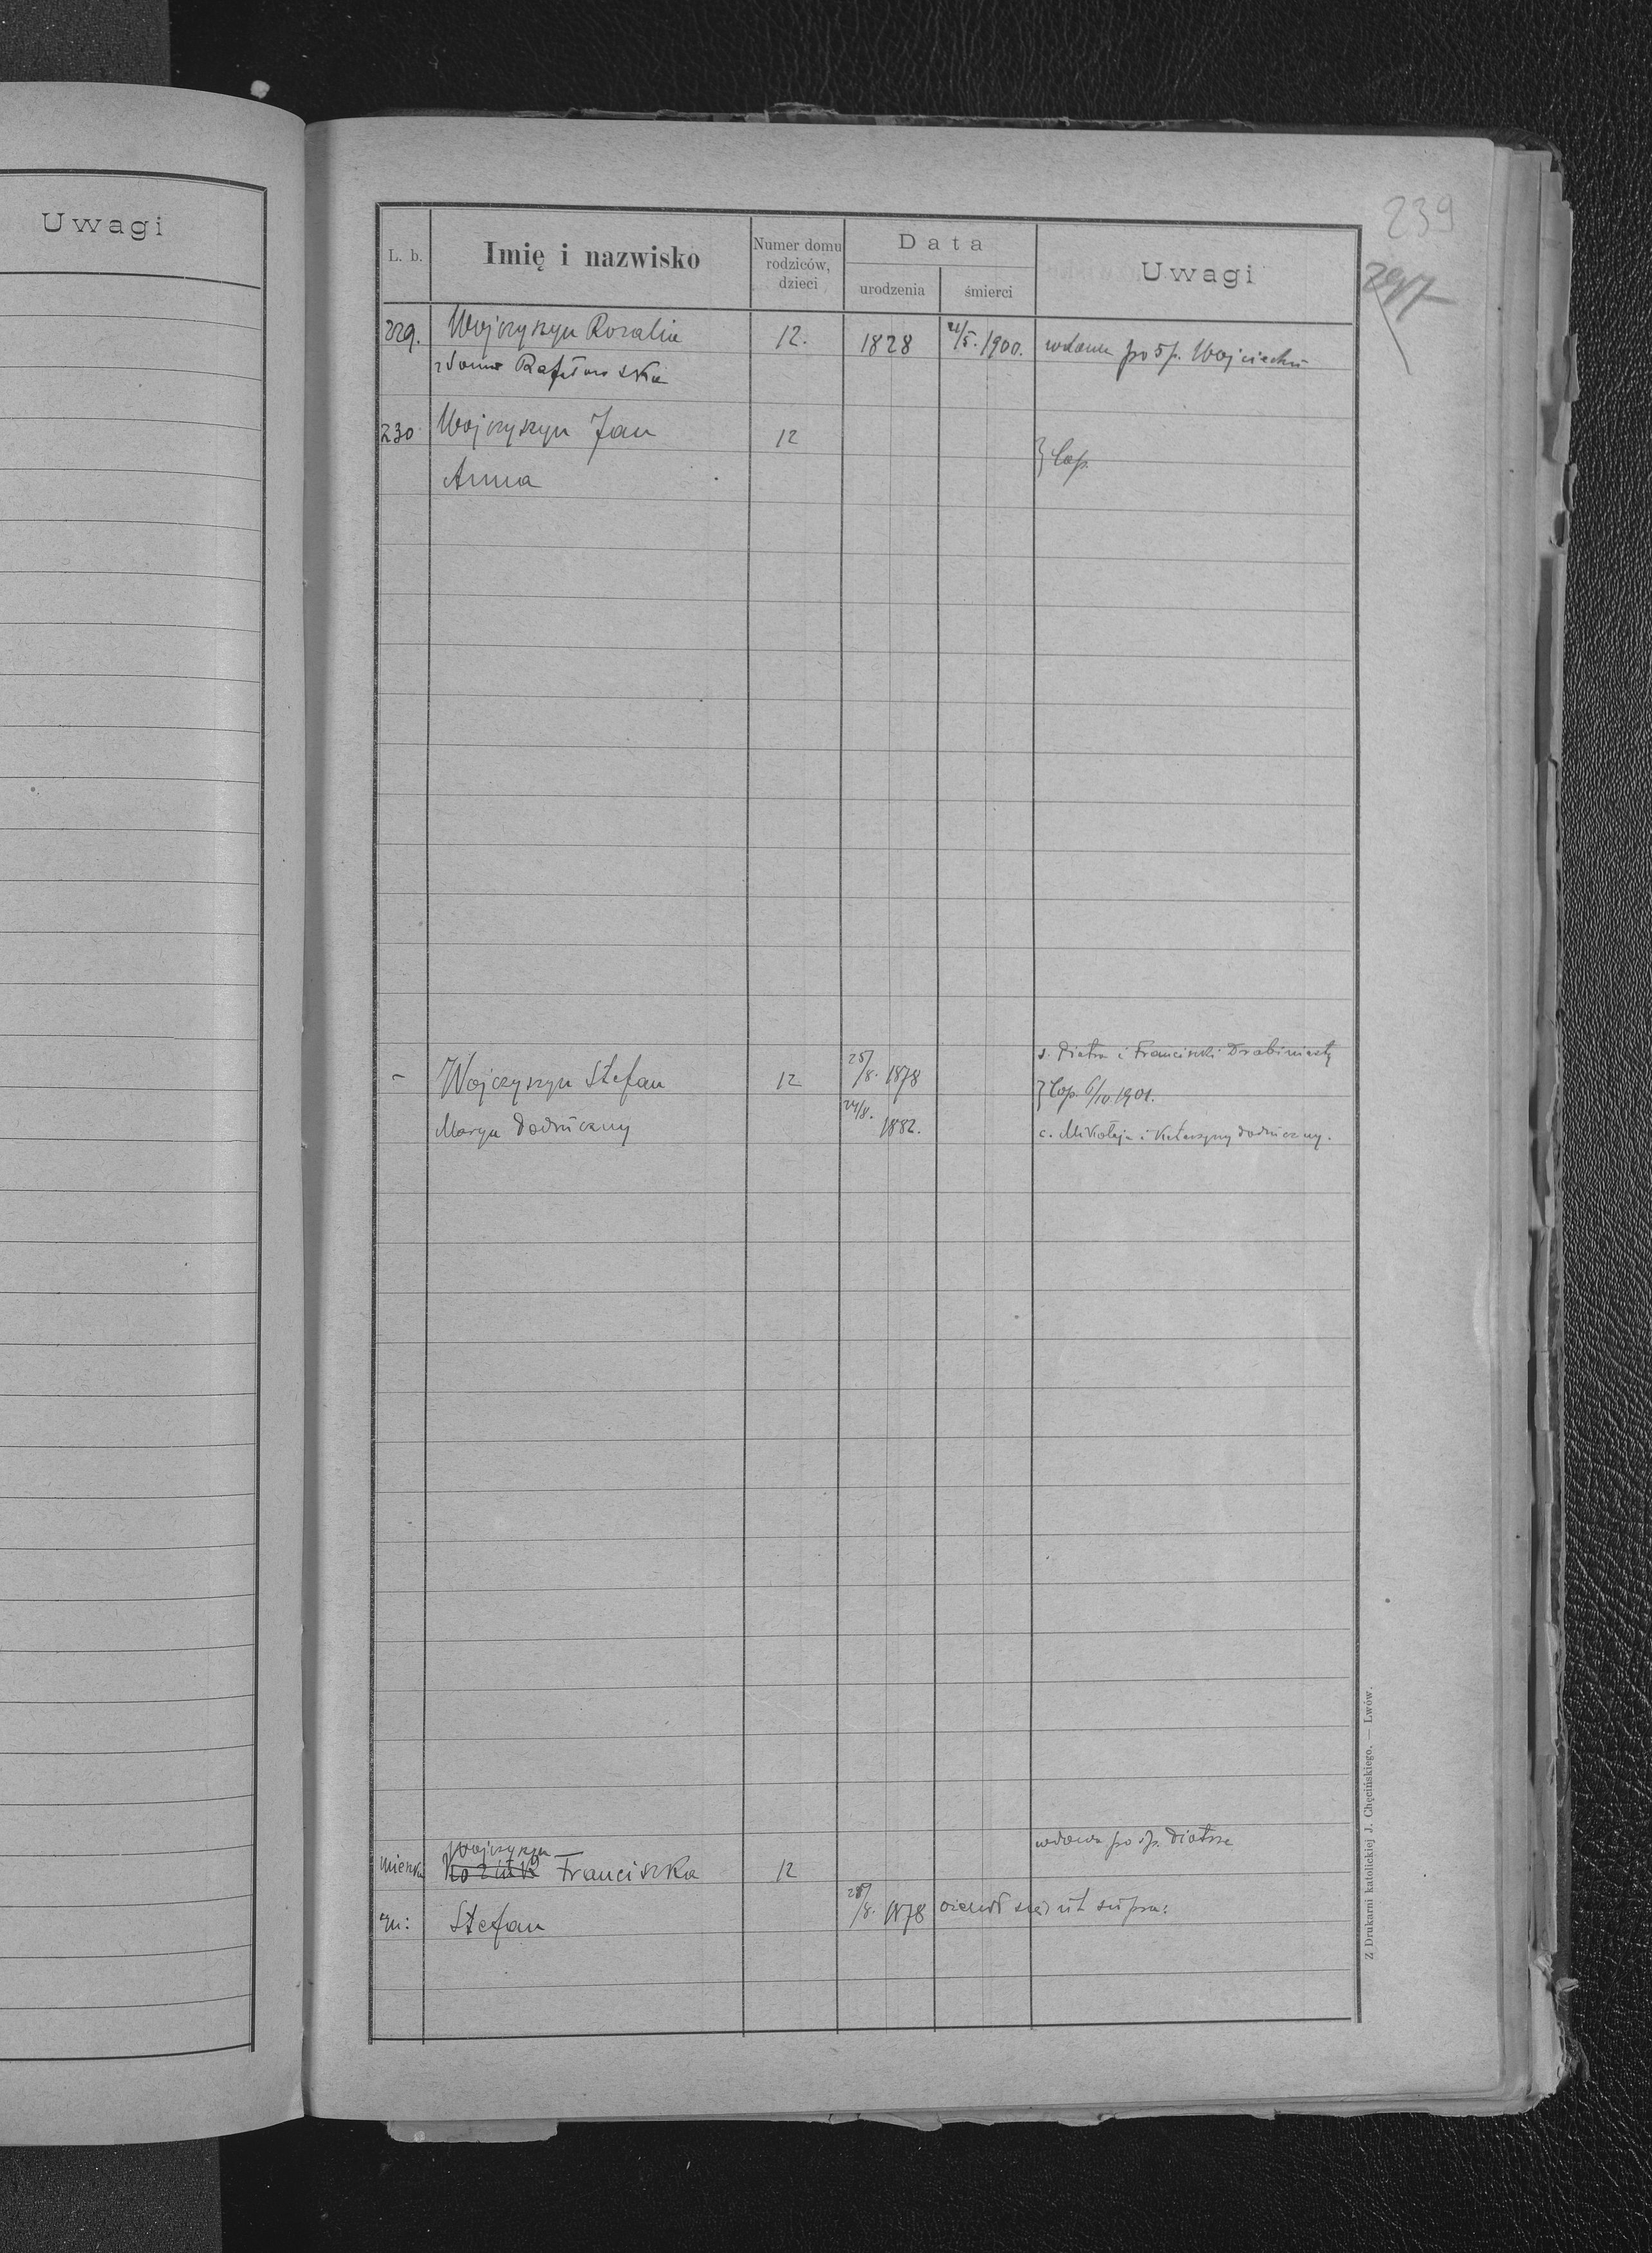 Uwagi
239
297
L. b.
Imię i nazwisko
Numer domu
rodziców,
dzieci
Data
urodzenia
śmierci
Uwagi
229. Wojczyszyn Rozalia 12. 1828 21/5. 1900. wdowa po ś p. Wojciechu
z domu
230 Wojczyszyn Jan 12
} Cop.
Anna
s. Piotra i Franciszki
– Wojczyszyn Stefan 12 25/8. 1878 } Cop. 6/10 1901.
Marya 24/8. 1882. c. Mikołaja i Katarzyny
Wojczyszyn wdowa po śp. Piotrze
Franciszka 12
m: Stefan 25/8. 1878 ożenił się ut supra:
Z Drukarni katolickiej J. Chęcińskiego. — Lwów.